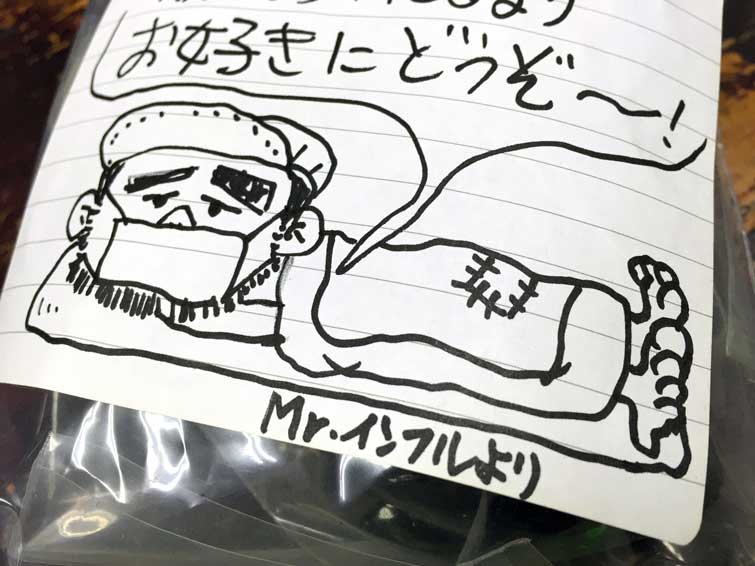 より
お好きにどうぞ〜!
Mr.インフルより